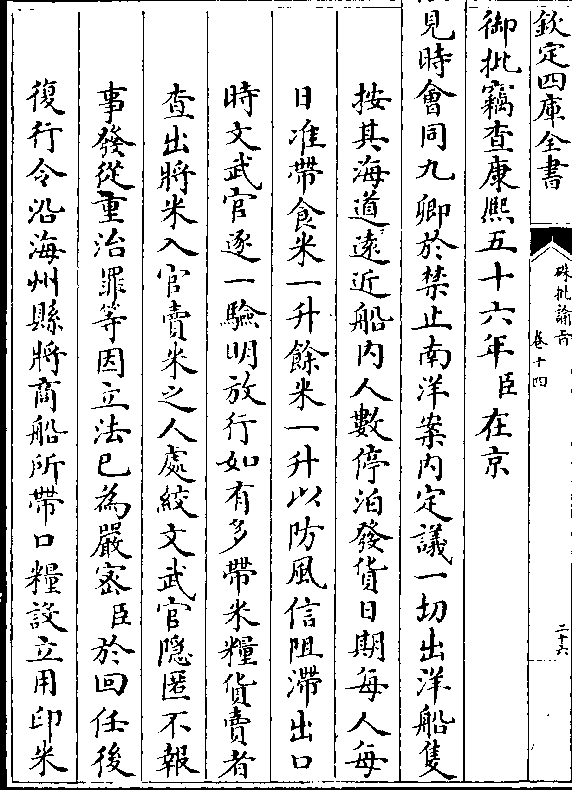 欽定四庫全書
硃批諭旨
卷十四
二十六
御批竊查康熙五十六年臣在京
見時會同九卿於禁止南洋案內定議一切出洋船隻
按其海道遠近船內人數停泊發貨日期每人每
日准帶食米一升餘米一升以防風信阻滯出口
時文武官逐一驗明放行如有多帶米糧貨賣者
查出將米入官賣米之人處絞文武官隱匿不報
事發從重治罪等因立法已為嚴密臣於回任後
復行令沿海州縣將商船所帶口糧設立用印米